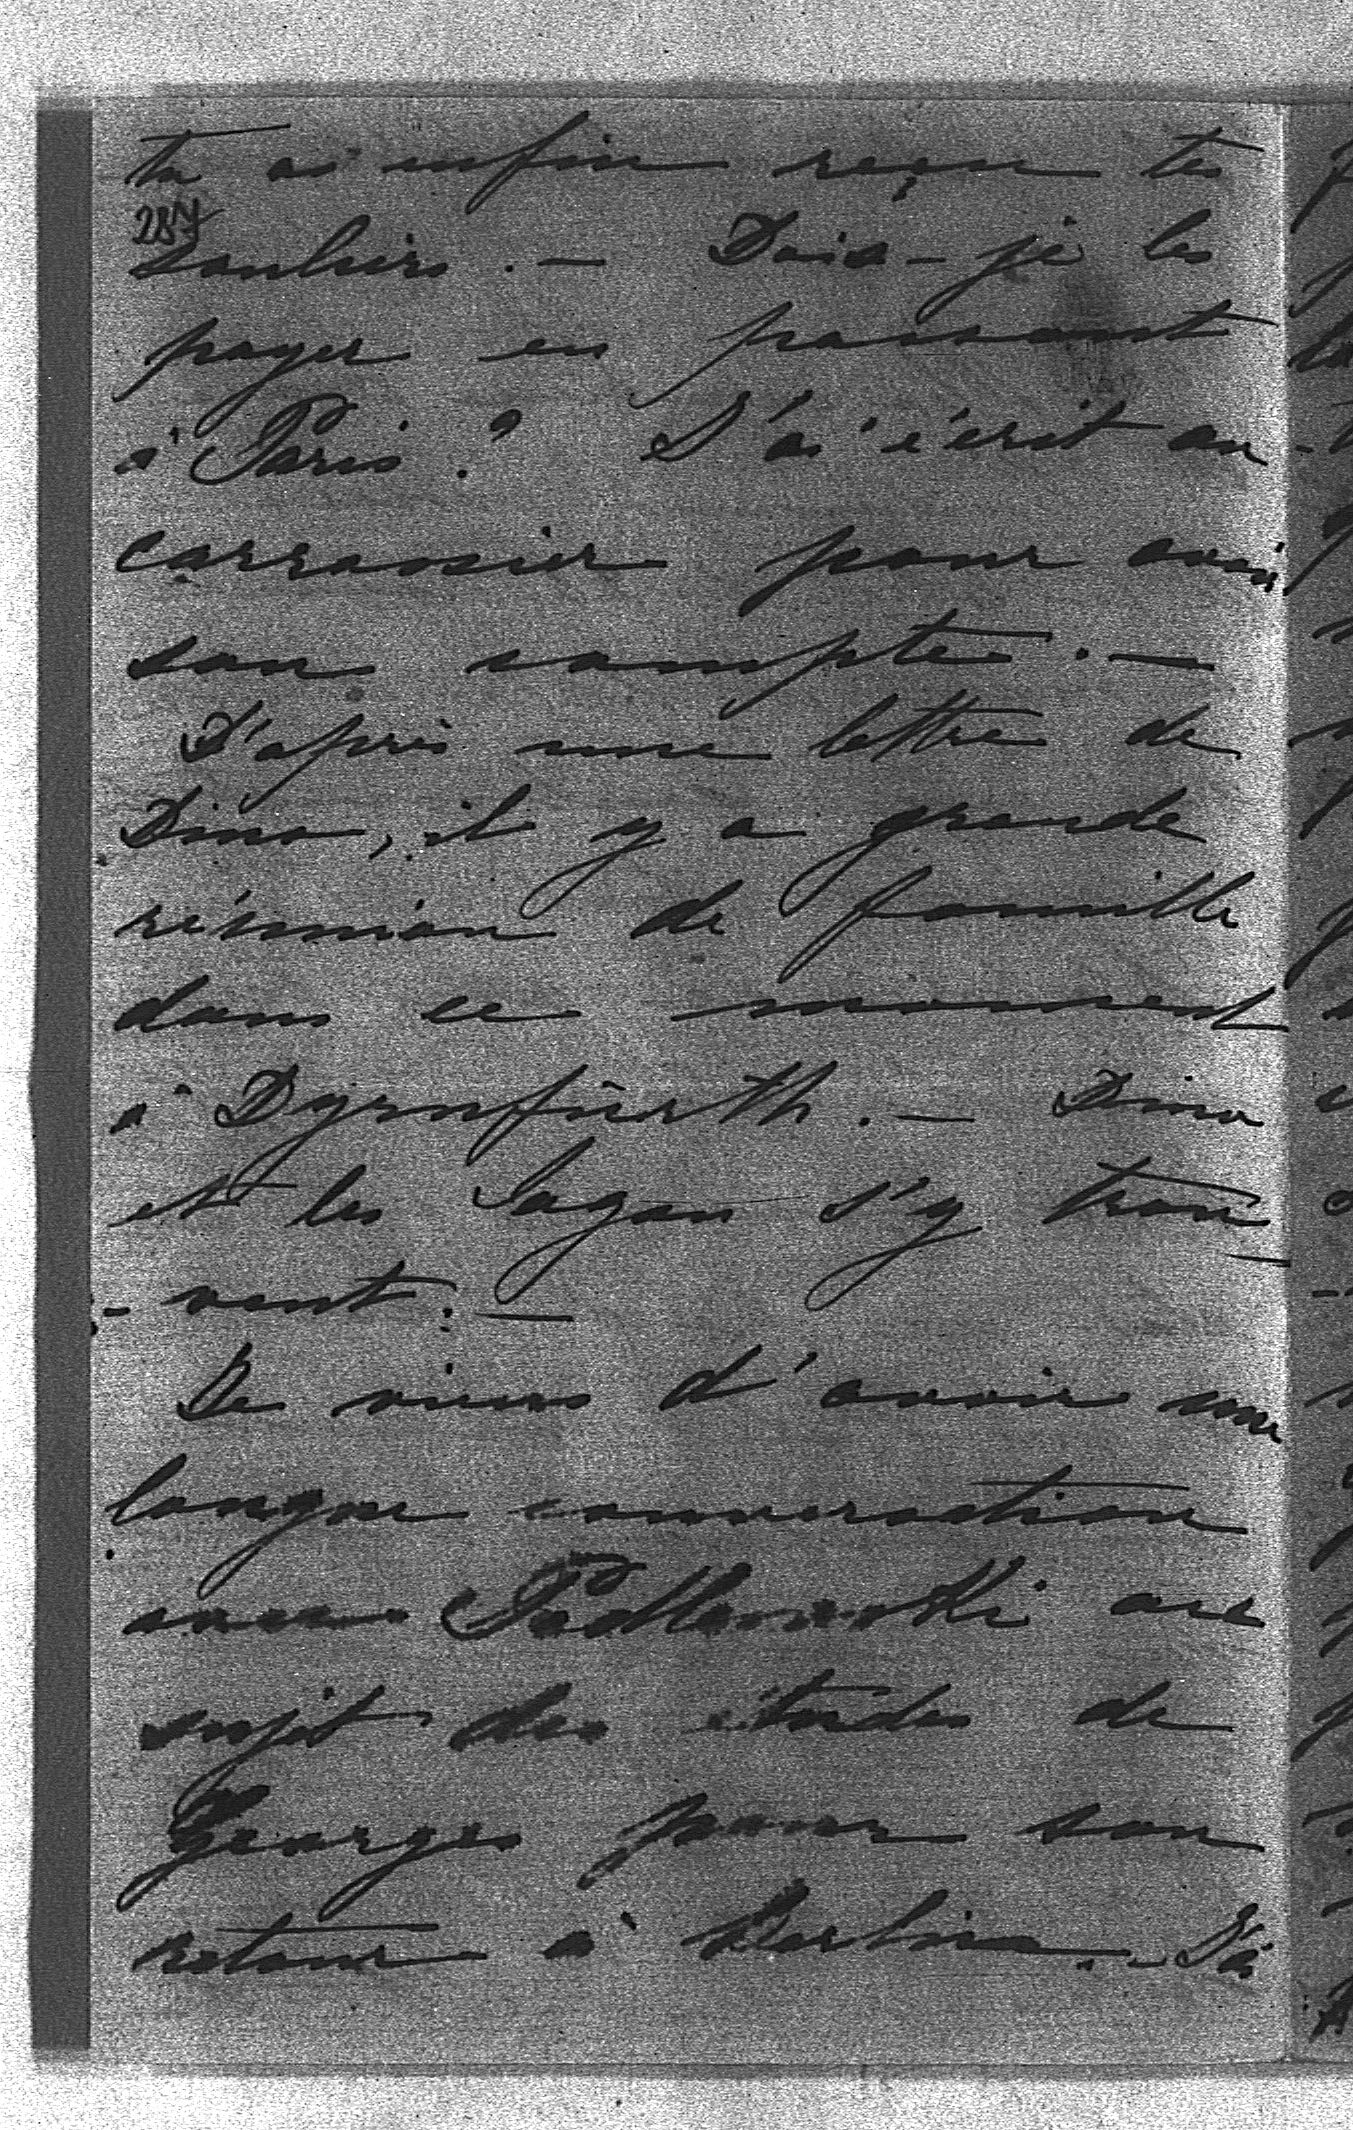 tu as enfin reçu tes
287
souliers. — Dois-je les
payer en passant
à Paris? J'ai écrit au
carrossier pour avoir
son compte. —
D'après une lettre de
Dino, il y a grande
réunion de famille
dans ce moment
à Dyrnfürth. — Dino
et les Sagan s'y trou-
-vent. —
Je viens d'avoir une
longue conversation
avec Podlewski au
sujet des études de
Georges pour son
retour à Berlin. - J'ai